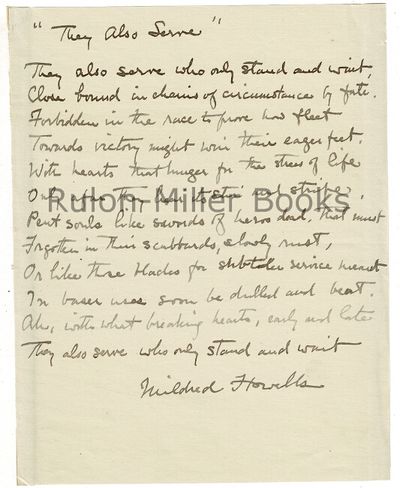 "They Also Serve"
They also serve who only stand and wait,
Close bound in chains of circumstance by fate.
Forbidden in the race to prove how fleet
Towards victory might win their eager feet.
With hearts that hunger for the stress of life
Rulon Miller Books
Pent souls like swords of heros dead, that must
Forgotten in their scabbards, slowly rust,
Or like those blades for service meant
In baser uses soon be dulled and bent.
Ah, with what breaking hearts, early and late
They also serve who only stand and wait
Mildred Howells